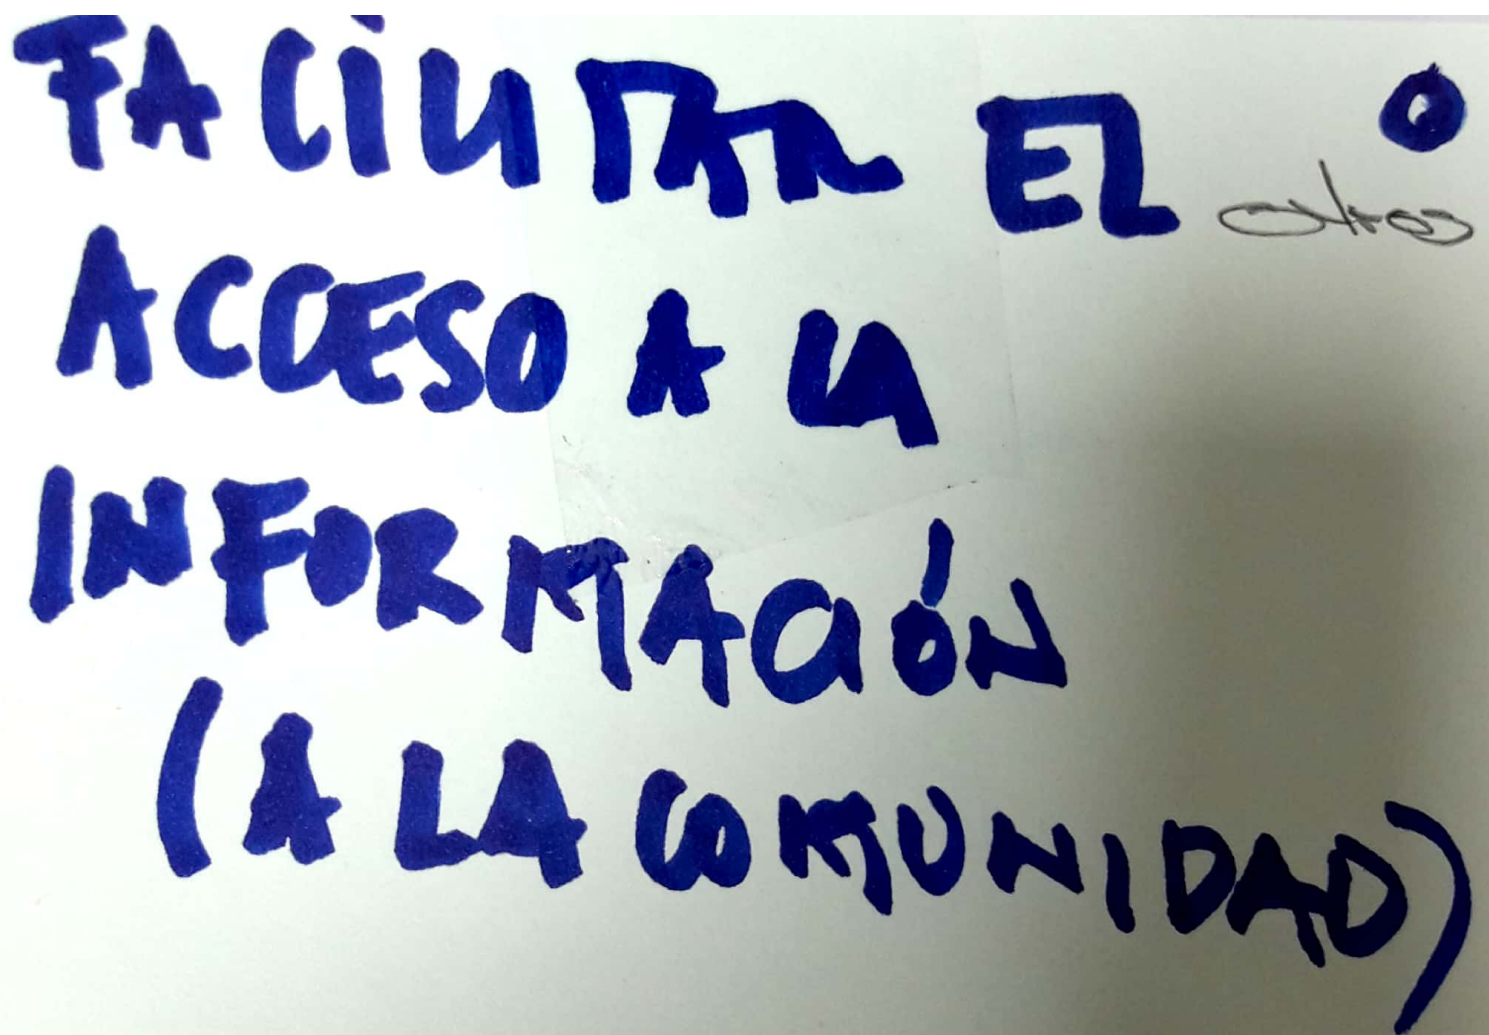 FACILITAR EL
otros
ACCESO A LA
INFORMACIÓN
(A LA COMUNIDAD)